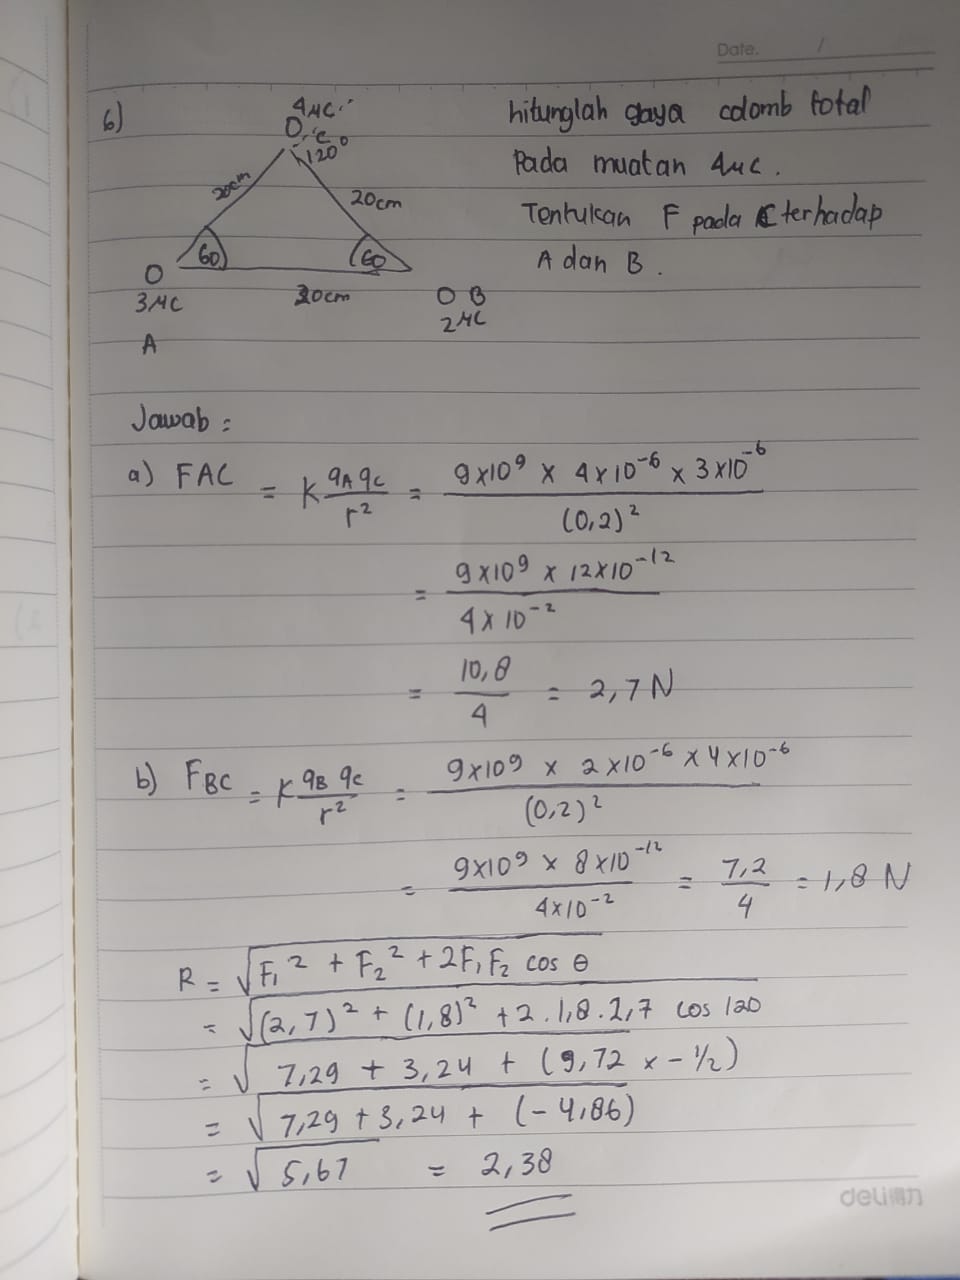 Date. /
6)
4μC
C
120°
20cm
20cm
60
60
3μC
20cm
B
2μC
A
hitunglah gaya colomb total
Pada muatan 4μC.
Tentukan F pada C terhadap
A dan B.
Jawab :
a) FAC = K qA qC / r² = 9x10⁹ x 4x10⁻⁶ x 3x10⁻⁶ / (0,2)²
= 9x10⁹ x 12x10⁻¹² / 4x10⁻²
= 10,8 / 4 = 2,7 N
b) FBC = K qB qC / r² = 9x10⁹ x 2x10⁻⁶ x 4x10⁻⁶ / (0,2)²
= 9x10⁹ x 8x10⁻¹² / 4x10⁻² = 7,2 / 4 = 1,8 N
R = √F₁² + F₂² + 2F₁F₂ cos θ
= √(2,7)² + (1,8)² + 2.1,8.2,7 cos 120
= √7,29 + 3,24 + (9,72 x -½)
= √7,29 + 3,24 + (-4,86)
= √5,67 = 2,38
deli得力